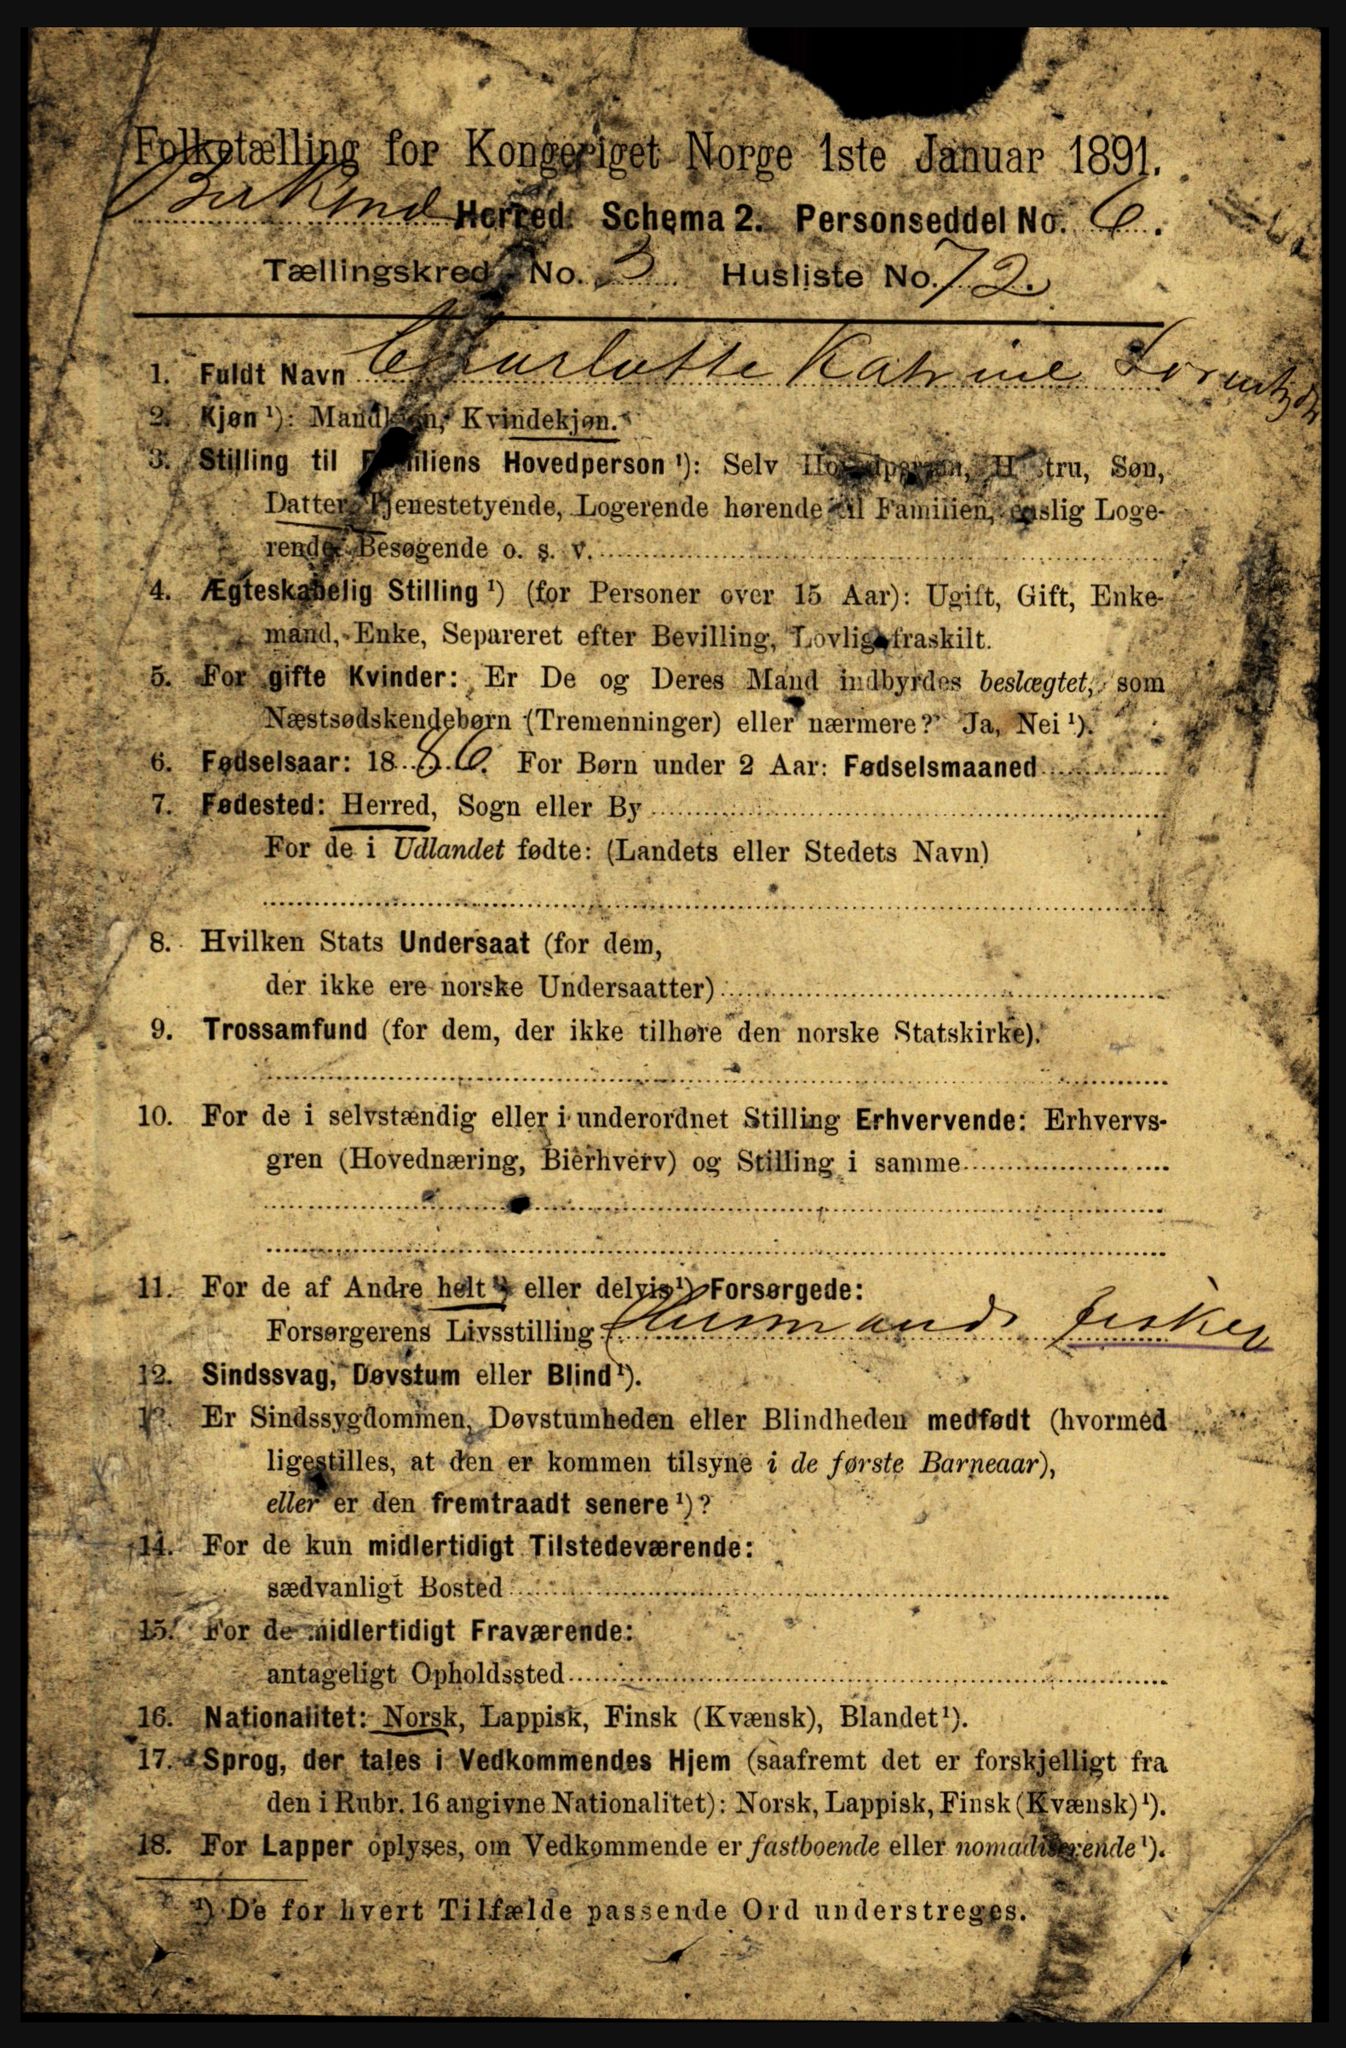 Folketælling for Kongeriget Norge 1ste Januar 1891.
Herred. Schema 2. Personseddel No. 6.
Tællingskreds No. 3 Husliste No. 72.
1. Fuldt Navn Charlotte Katrine
2. Kjøn ¹): Mandkjøn, Kvindekjøn.
3. Stilling til Familiens Hovedperson ¹): Selv Hovedperson, Hustru, Søn,
Datter, Tjenestetyende, Logerende hørende til Familien, enslig Loge-
rende, Besøgende o. s. v.
4. Ægteskabelig Stilling ¹) (for Personer over 15 Aar): Ugift, Gift, Enke-
mand, Enke, Separeret efter Bevilling, Lovlig fraskilt.
5. For gifte Kvinder: Er De og Deres Mand indbyrdes beslægtet, som
Næstsødskendebørn (Tremenninger) eller nærmere? Ja, Nei ¹).
6. Fødselsaar: 1886. For Børn under 2 Aar: Fødselsmaaned
7. Fødested: Herred, Sogn eller By
For de i Udlandet fødte: (Landets eller Stedets Navn)
8. Hvilken Stats Undersaat (for dem,
der ikke ere norske Undersaatter)
9. Trossamfund (for dem, der ikke tilhøre den norske Statskirke).
10. For de i selvstændig eller i underordnet Stilling Erhvervende: Erhvervs-
gren (Hovednæring, Bierhverv) og Stilling i samme
11. For de af Andre helt ¹) eller delvis ¹) Forsørgede:
Forsørgerens Livsstilling Husmand fisker
12. Sindssvag, Døvstum eller Blind ¹).
13. Er Sindssygdommen, Døvstumheden eller Blindheden medfødt (hvormed
ligestilles, at den er kommen tilsyne i de første Barneaar),
eller er den fremtraadt senere ¹)?
14. For de kun midlertidigt Tilstedeværende:
sædvanligt Bosted
15. For de midlertidigt Fraværende:
antageligt Opholdssted
16. Nationalitet: Norsk, Lappisk, Finsk (Kvænsk), Blandet ¹).
17. Sprog, der tales i Vedkommendes Hjem (saafremt det er forskjelligt fra
den i Rubr. 16 angivne Nationalitet): Norsk, Lappisk, Finsk (Kvænsk) ¹).
18. For Lapper oplyses, om Vedkommende er fastboende eller nomadiserende ¹).
¹) De for hvert Tilfælde passende Ord understreges.